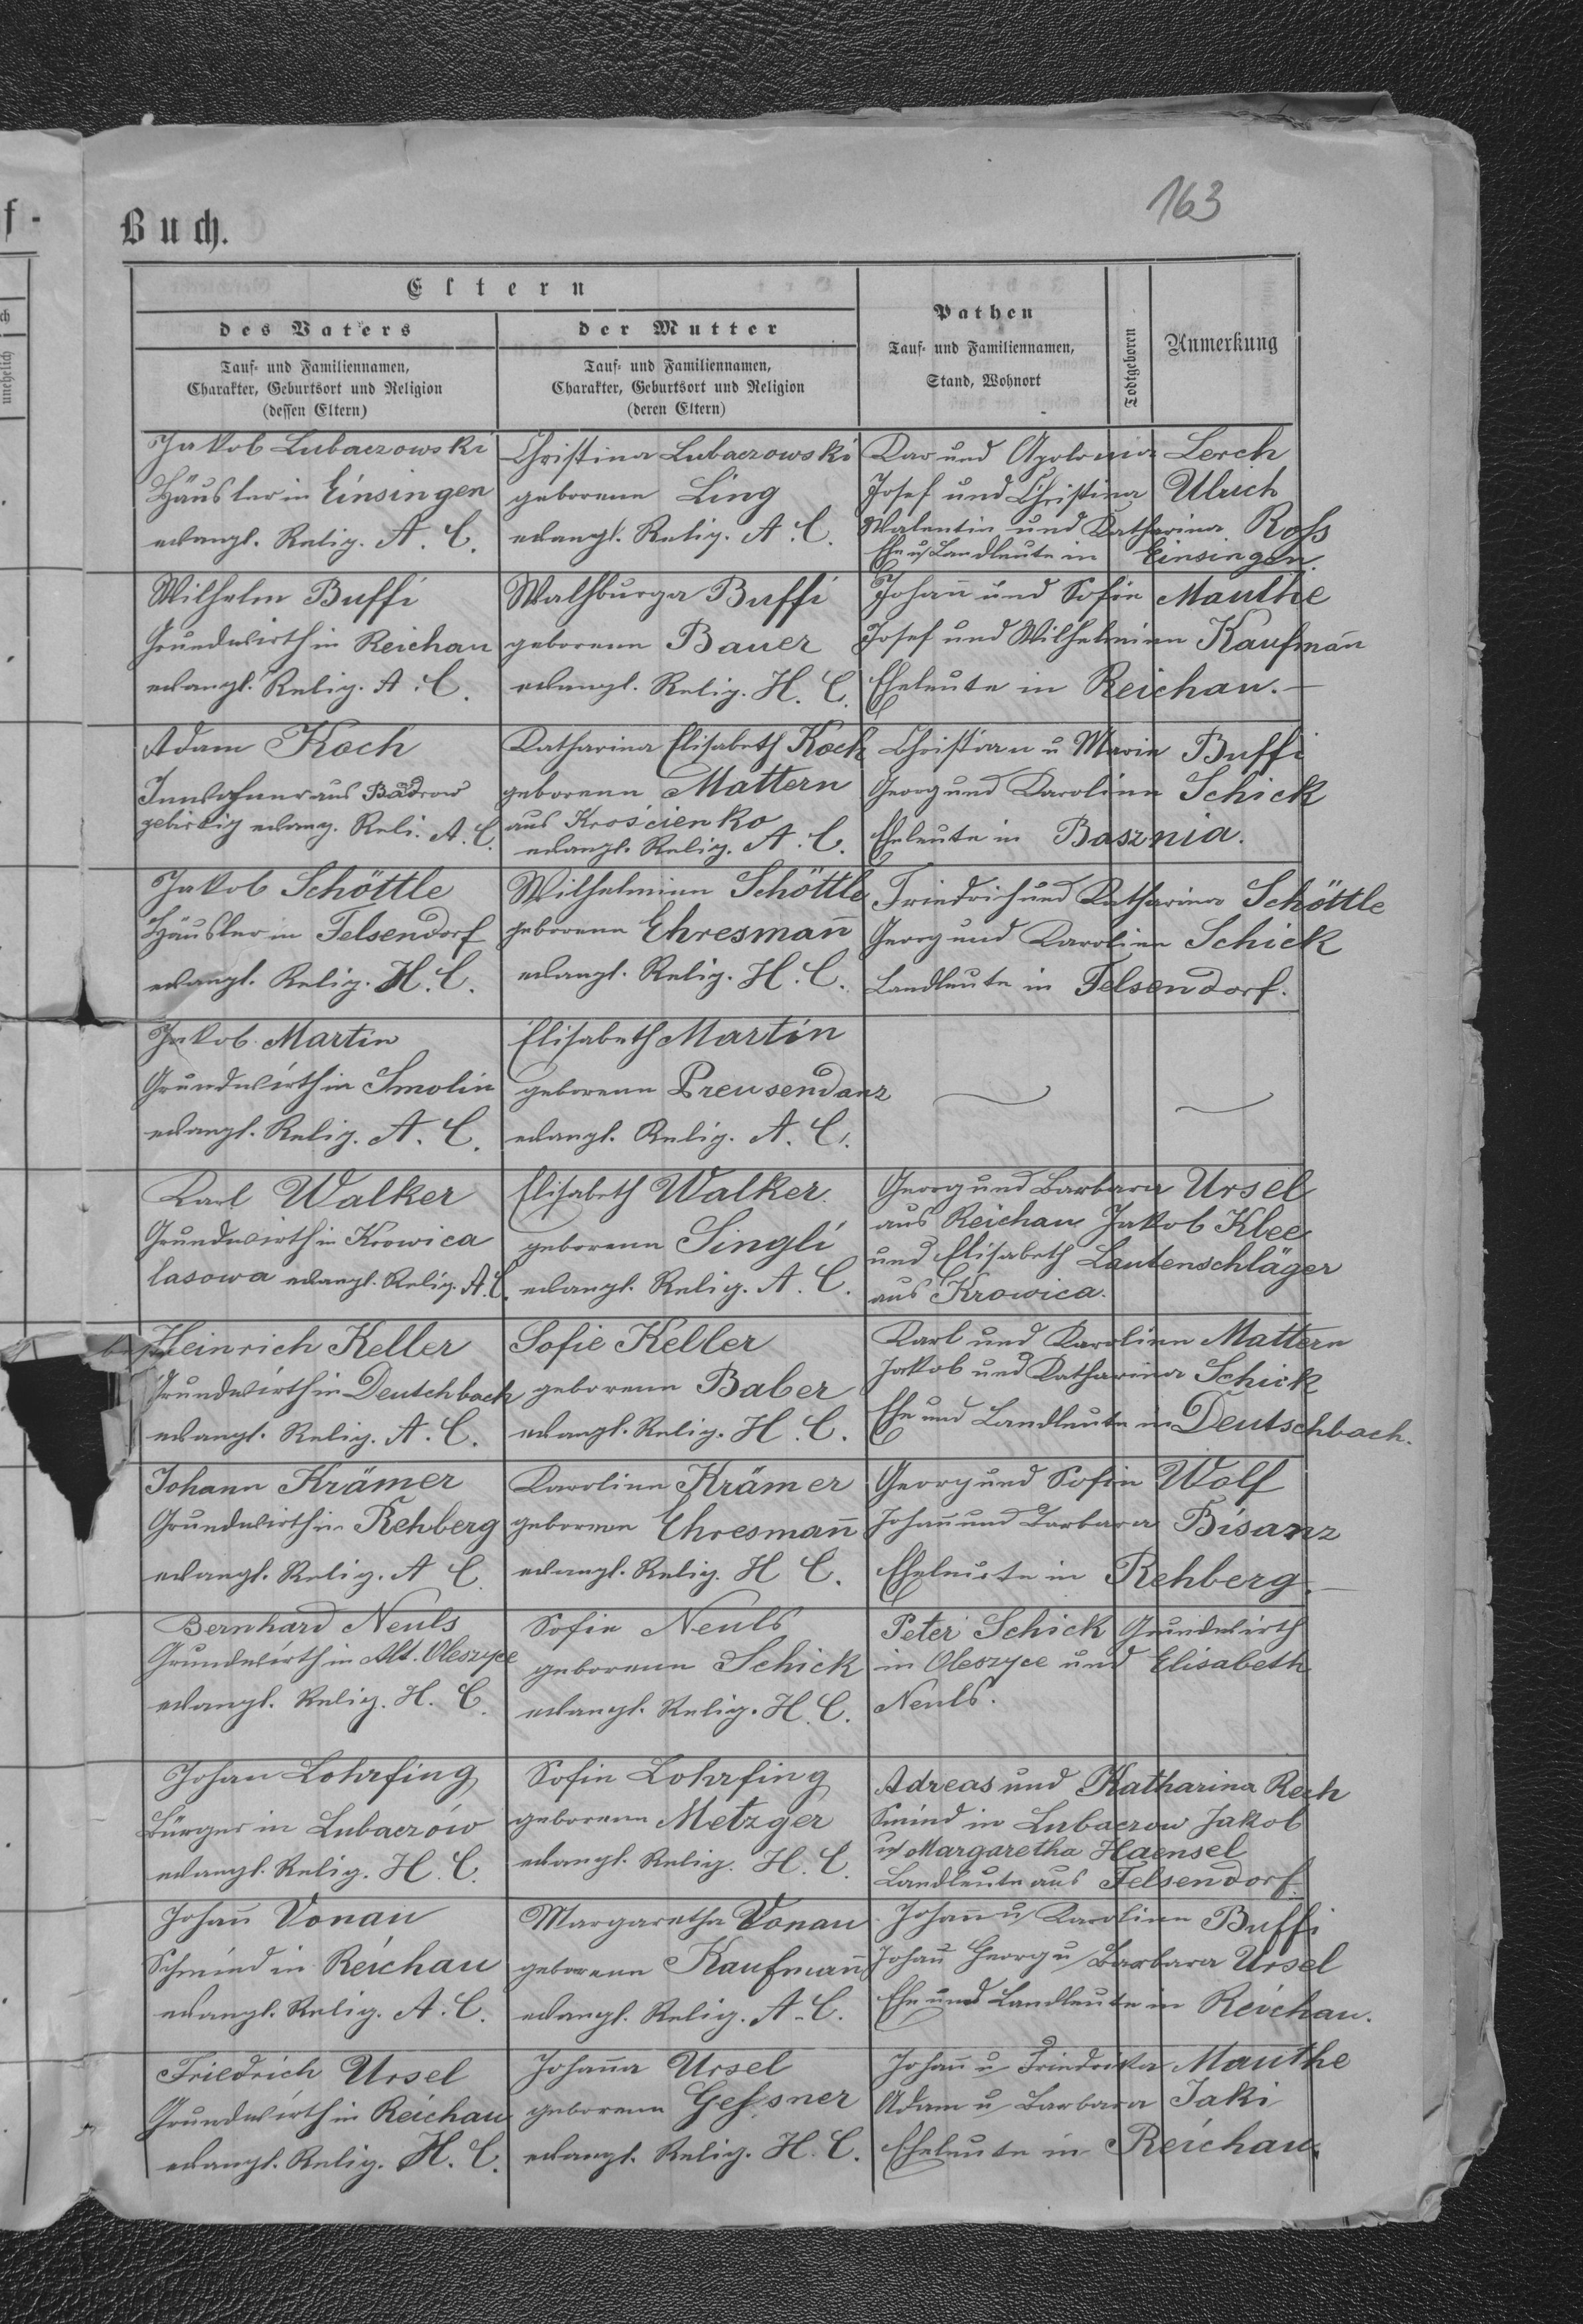 163
f-
Buch.
Eltern
des Vaters
der Mutter
Pathen
Todtgeboren
Anmerkung
Tauf- und Familiennamen,
Charakter, Geburtsort und Religion
(dessen Eltern)
Tauf- und Familiennamen,
Charakter, Geburtsort und Religion
(deren Eltern)
Tauf- und Familiennamen,
Stand, Wohnort
ch
unehelich
Jakob Lubaczowski
Häusler in Einsingen
evangl. Relig. A. C.
Christina Lubaczowski
geborene Ling
evangl. Relig. A. C.
und Apolonia Lerch
Josef und Christina Ulrich
Walentin und Katharina Roß
Ehe u Landleute in Einsingen.
Wilhelm Buffi
Grundwirth in Reichau
evangl. Relig. A. C.
Walburga Buffi
geborene Bauer
evangl. Relig. H. C.
Johañ und Sofie Mauthe
Josef und Wilhelmine Kaufmañ
Eheleute in Reichau.
Adam Koch
Inwohner aus
gebürtig evang. Reli. A. C.
Katharina Elisabeth Koch
geborene Mattern
aus Krościenko
evangl. Relig. A. C.
Christian u Marie Buffi
Georg und Karoline Schick
Eheleute in Basznia.
Jakob Schöttle
Häusler in Felsendorf
evangl. Relig. H. C.
Wilhelmine Schöttle
geborene Ehresmañ
evangl. Relig. H. C.
Friedrich und Katharina Schöttle
Georg und Karoline Schick
Landleute in Felsendorf.
Jakob Martin
Grundwirth in Smolin
evangl. Relig. A. C.
Elisabeth Martin
geborene Preusendanz
evangl. Relig. A. C.
Karl Walker
Grundwirth in Krowica
lasowa evangl. Relig. A. C.
Elisabeth Walker
geborene Singli
evangl. Relig. A. C.
Georg und Barbara Ursel
aus Reichau Jakob Klee
und Elisabeth Lautenschläger
aus Krowica.
Heinrich Keller
Grundwirth in Deutchbach
evangl. Relig. A. C.
Sofie Keller
geborene Baber
evangl. Relig. H. C.
Karl und Karoline Mattern
Jakob und Katharina Schick
Ehe und Landleute in Deutschbach.
Johann Krämer
Grundwirth in Rehberg
evangl. Relig. A C.
Karoline Krämer
geborene Ehresmañ
evangl. Relig. H C.
Georg und Sofie Wolf
Johañ und Barbara Bisanz
Eheleute in Rehberg.
Bernhard Neuls
Grundwirth in Alt. Oleszyce
evangl. Relig. H. C.
Sofie Neuls
geborene Schick
evangl. Relig. H. C.
Peter Schick Grundwirth
in Oleszyce und Elisabeth
Neuls.
Johan Lohrfing
Bürger in Lubaczów
evangl. Relig. H. C.
Sofie Lohrfing
geborene Metzger
evangl. Relig. H. C.
Adreas und Katharina Rech
in Lubaczow Jakob
u Margaretha Haensel
Landleute aus Felsendorf.
Johañ Vonau
Schmied in Reichau
evangl. Relig. A. C.
Margaretha Vonau
geborene Kaufmañ
evangl. Relig. A. C.
Johañ u Karoline Buffi
Johañ Georg u Barbara Ursel
Ehe und Landleute in Reichau.
Friedrich Ursel
Grundwirth in Reichau
evangl. Relig. H. C.
Johaña Ursel
geborene Geßner
evangl. Relig. H. C.
Johañ u Friedrika Mauthe
Adam u Barbara Jaki
Eheleute in Reichau.